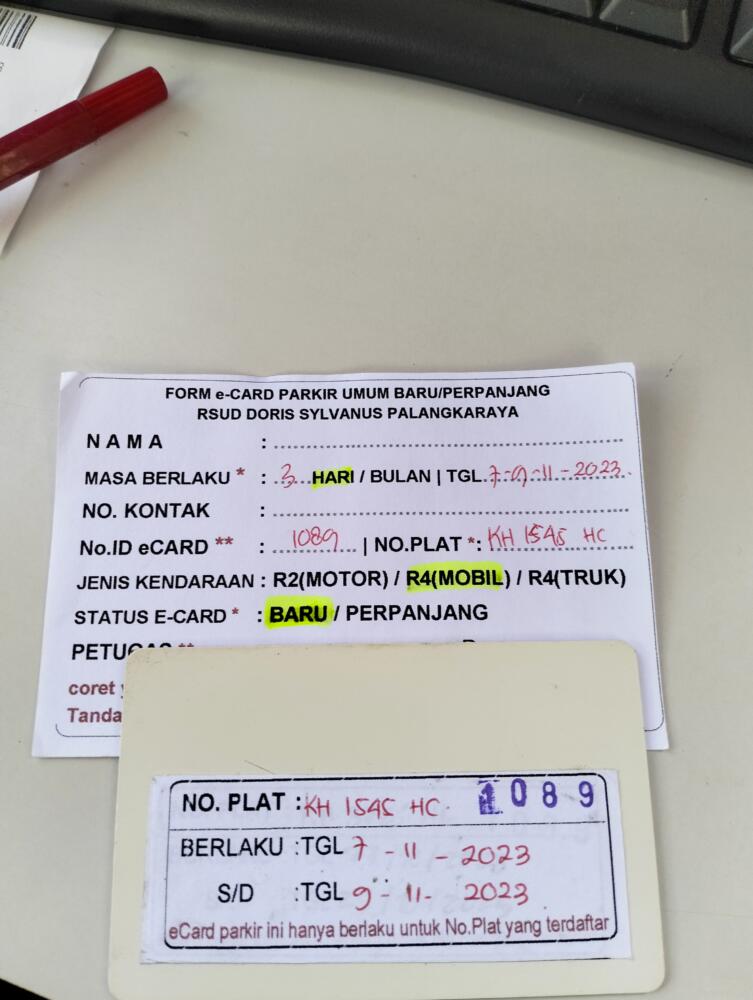 FORM e-CARD PARKIR UMUM BARU/PERPANJANG
RSUD DORIS SYLVANUS PALANGKARAYA
NAMA :
MASA BERLAKU * : 3 HARI / BULAN | TGL. 7-9-11-2023.
NO. KONTAK :
No.ID eCARD ** : 1089 | NO.PLAT *: KH 1545 HC
JENIS KENDARAAN : R2(MOTOR) / R4(MOBIL) / R4(TRUK)
STATUS E-CARD * : BARU / PERPANJANG
coret
Tanda
NO. PLAT : KH 1545 HC. 1089
BERLAKU :TGL 7 - 11 - 2023
S/D :TGL 9 - 11 - 2023
eCard parkir ini hanya berlaku untuk No.Plat yang terdaftar